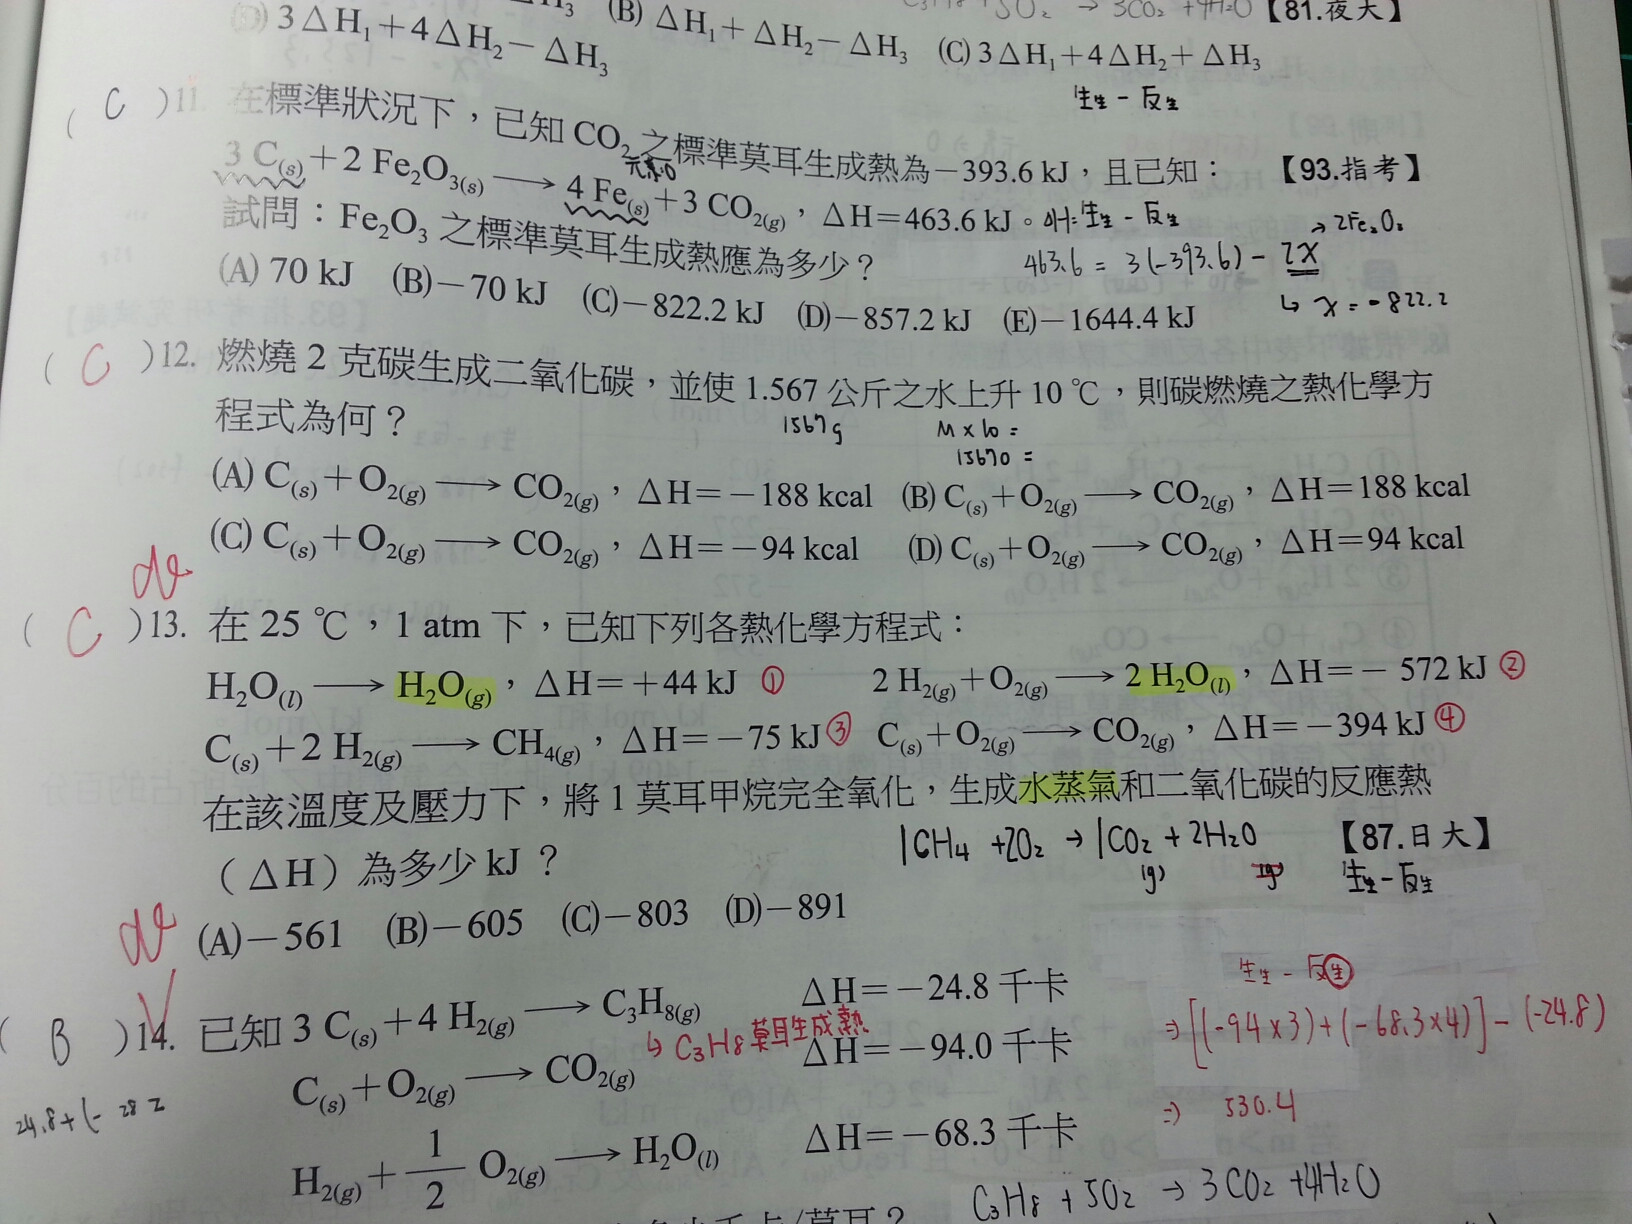 (B) ΔH₁+ΔH₂−ΔH₃ 【81.夜大】
3ΔH₁+4ΔH₂−ΔH₃ (C) 3ΔH₁+4ΔH₂+ΔH₃
生生 - 反生
( C )11. 在標準狀況下，已知 CO₂ 之標準莫耳生成熱為−393.6 kJ，且已知： 【93.指考】
元素:0
3 C(s)+2 Fe₂O₃(s) ⟶ 4 Fe(s)+3 CO₂(g)，ΔH=463.6 kJ。 ΔH=生生 - 反生
→ 2Fe₂O₃
試問：Fe₂O₃ 之標準莫耳生成熱應為多少？ 463.6 = 3(-393.6) - 2X
(A) 70 kJ (B)−70 kJ (C)−822.2 kJ (D)−857.2 kJ (E)−1644.4 kJ ↳ x = -822.2
( C )12. 燃燒 2 克碳生成二氧化碳，並使 1.567 公斤之水上升 10 ℃，則碳燃燒之熱化學方
程式為何？ 1567g M×10 =
15670 =
(A) C(s)+O₂(g) ⟶ CO₂(g)，ΔH=−188 kcal (B) C(s)+O₂(g) ⟶ CO₂(g)，ΔH=188 kcal
(C) C(s)+O₂(g) ⟶ CO₂(g)，ΔH=−94 kcal (D) C(s)+O₂(g) ⟶ CO₂(g)，ΔH=94 kcal
( C )13. 在 25 ℃，1 atm 下，已知下列各熱化學方程式：
H₂O(l) ⟶ H₂O(g)，ΔH=+44 kJ ① 2 H₂(g)+O₂(g) ⟶ 2 H₂O(l)，ΔH=− 572 kJ ②
C(s)+2 H₂(g) ⟶ CH₄(g)，ΔH=−75 kJ ③ C(s)+O₂(g) ⟶ CO₂(g)，ΔH=−394 kJ ④
在該溫度及壓力下，將 1 莫耳甲烷完全氧化，生成水蒸氣和二氧化碳的反應熱
（ΔH）為多少 kJ？ 1CH₄ +2O₂ → 1CO₂ + 2H₂O 【87.日大】
(g) (g) 生生-反生
(A)−561 (B)−605 (C)−803 (D)−891
生生 - 反生
( B )14. 已知 3 C(s)+4 H₂(g) ⟶ C₃H₈(g) ΔH=−24.8 千卡
⇒ [(-94×3)+(-68.3×4)] - (-24.8)
↳ C₃H₈ 莫耳生成熱
C(s)+O₂(g) ⟶ CO₂(g) ΔH=−94.0 千卡
⇒ 530.4
24.8+(- 282
H₂(g)+1/2 O₂(g) ⟶ H₂O(l) ΔH=−68.3 千卡
C₃H₈ + 5O₂ → 3CO₂ +4H₂O
千卡/莫耳？